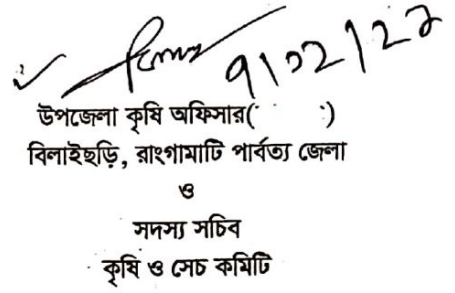 ৭/১২/২২
উপজেলা কৃষি অফিসার( )
বিলাইছড়ি, রাংগামাটি পার্বত্য জেলা
ও
সদস্য সচিব
কৃষি ও সেচ কমিটি